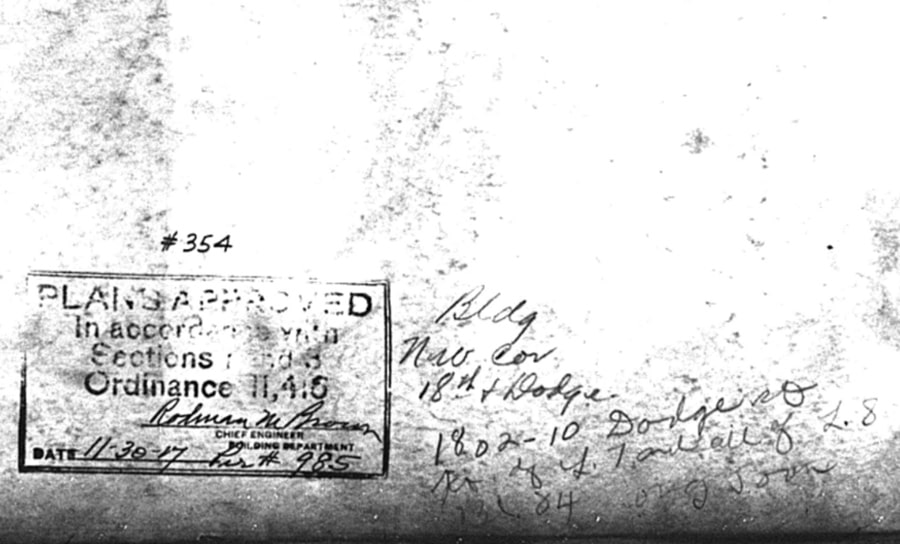 #354
PLANS APPROVED
In accordance with
Sections and 3
Ordinance 11,415
Rodman M Brown
CHIEF ENGINEER
BUILDING DEPARTMENT
DATE 11-30-17 Per # 985
Bldg
N.W. Cor
18th & Dodge
1802-10 Dodge st
of L. 7 and all of L. 8
84 orig Town